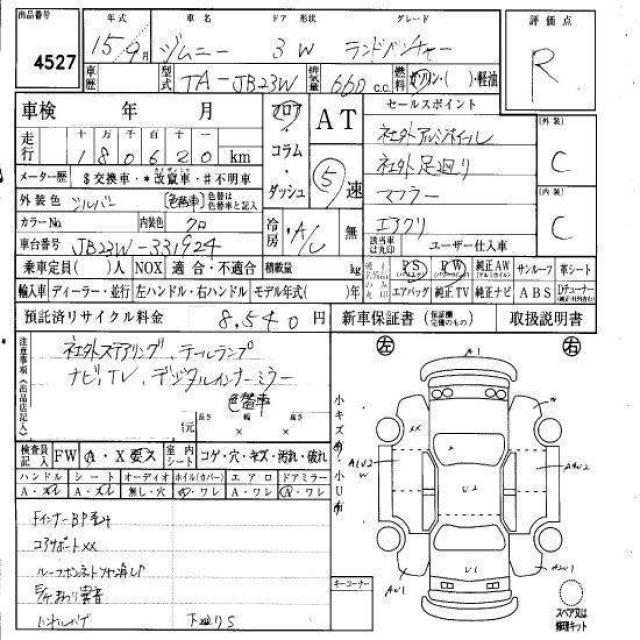 出品番号 年式 車名 ドア 形状 グレード 評価点
4527 15 9月 ジムニー 3 W ランドベンチャー R
車歴 型式 TA-JB23W 排気量 660 c.c. 燃料 ガソリン・( )・軽油
車検 年 月 フロア・コラム・ダッシュ AT セールスポイント
走行 十 万 千 百 十 一 社外アルミホイール 外装
180620 km 5速 社外足回り C
メーター歴 $交換車・*改竄車・#不明車 マフラー 内装
外装色 シルバー (色替車) 色替は色替車と記入 エアクリ C
カラーNo. 内装色 クロ 冷房 A/C 無 該当車は丸印 ユーザー仕入車
車台番号 JB23W-331924
乗車定員( )人 NOX 適合・不適合 積載量 kg PS PW 純正AW サンルーフ 革シート
輸入車 ディーラー・並行 左ハンドル・右ハンドル モデル年式( )年 エアバッグ 純正TV 純正ナビ ABS Dチューナー
預託済リサイクル料金 8,540 円 新車保証書 取扱説明書
注意事項(出品店記入) 社外ステアリング、テールランプ 左 右
ナビ、TV、デジタルインナーミラー A1
色替車
長さ 幅 高さ
元 × ×
検査員記入 FW A・X要ス 室内シート コゲ・穴・キズ・汚れ・破れ
ハンドル シート オーディオ ホイル(カバー) エアロ ドアミラー
A・スレ A・スレ 無し・穴 ワレ A・ワレ ワレ
小キズ有 小U有
XX
A1U2 W
U2
コアサポートXX
U1
キーコーナー
下廻りS
スペア又は修理キット